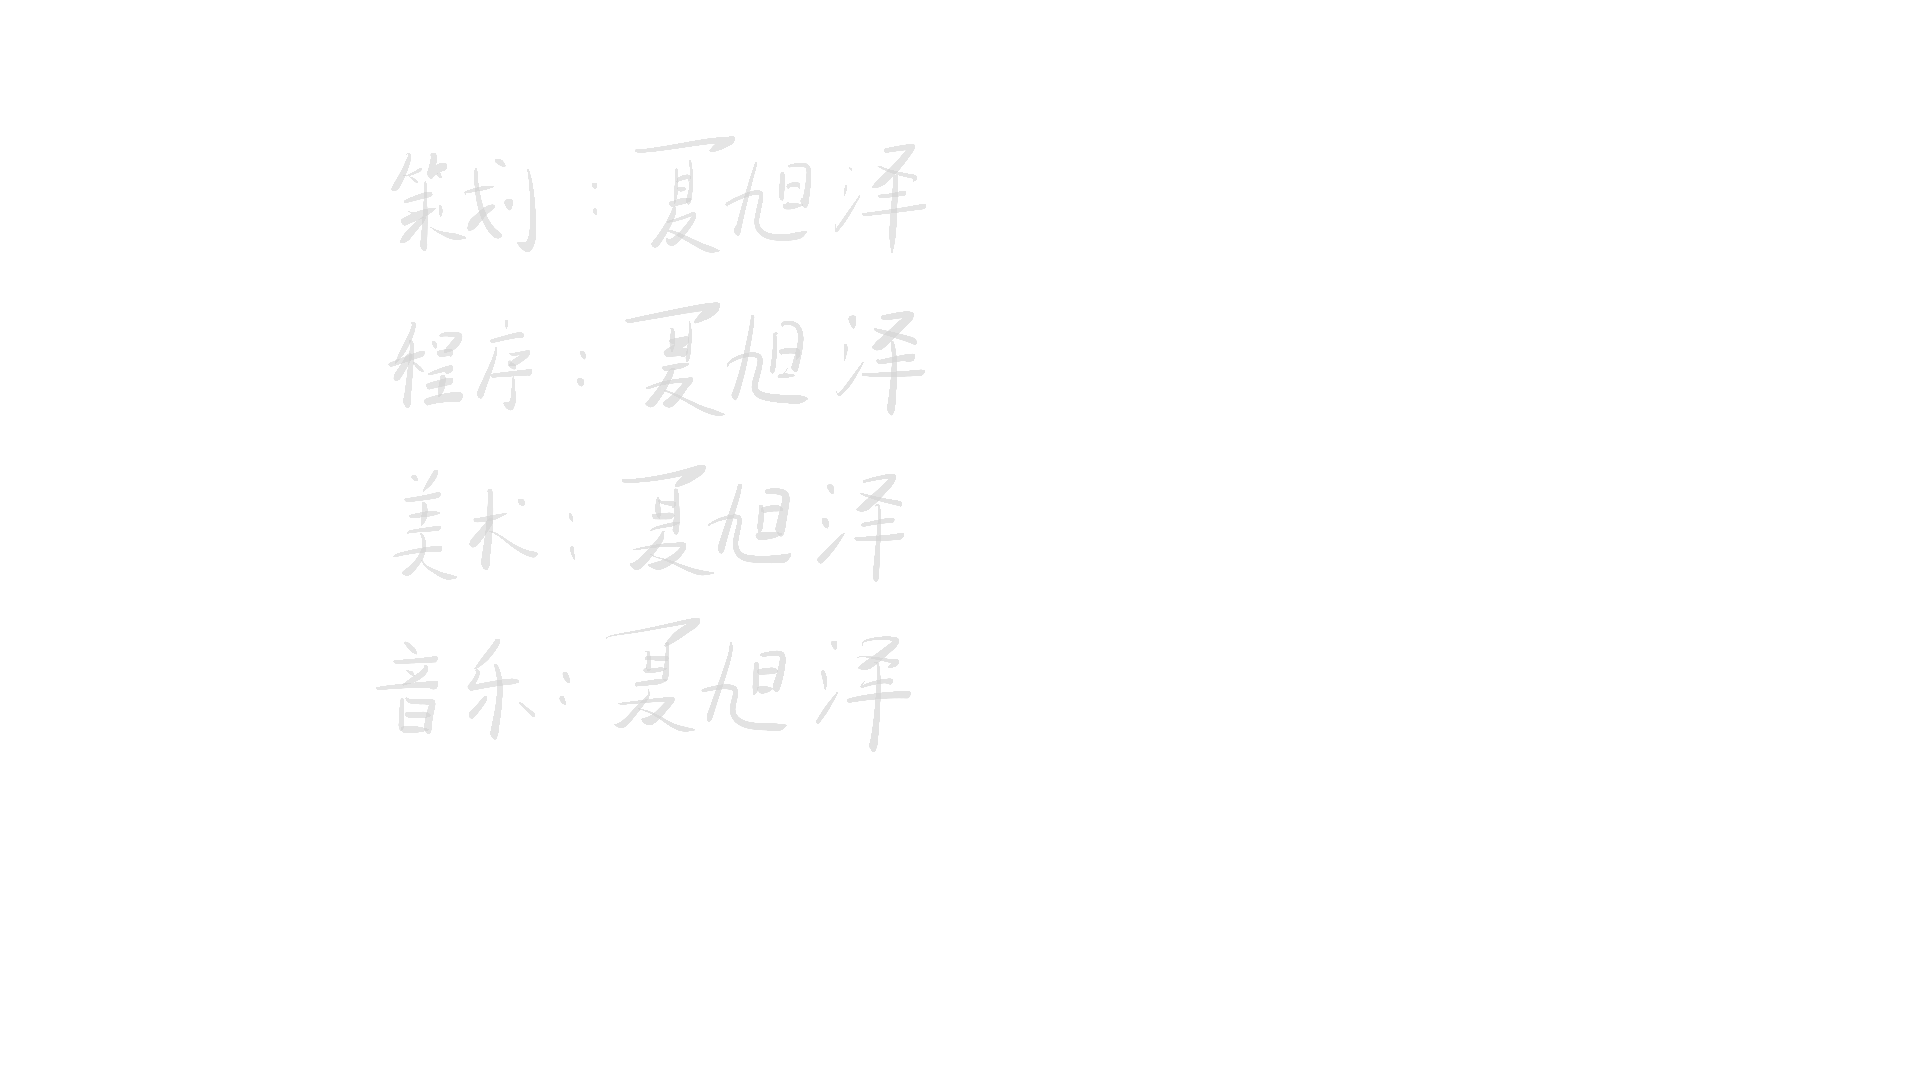 策划：夏旭泽
程序：夏旭泽
美术：夏旭泽
音乐：夏旭泽